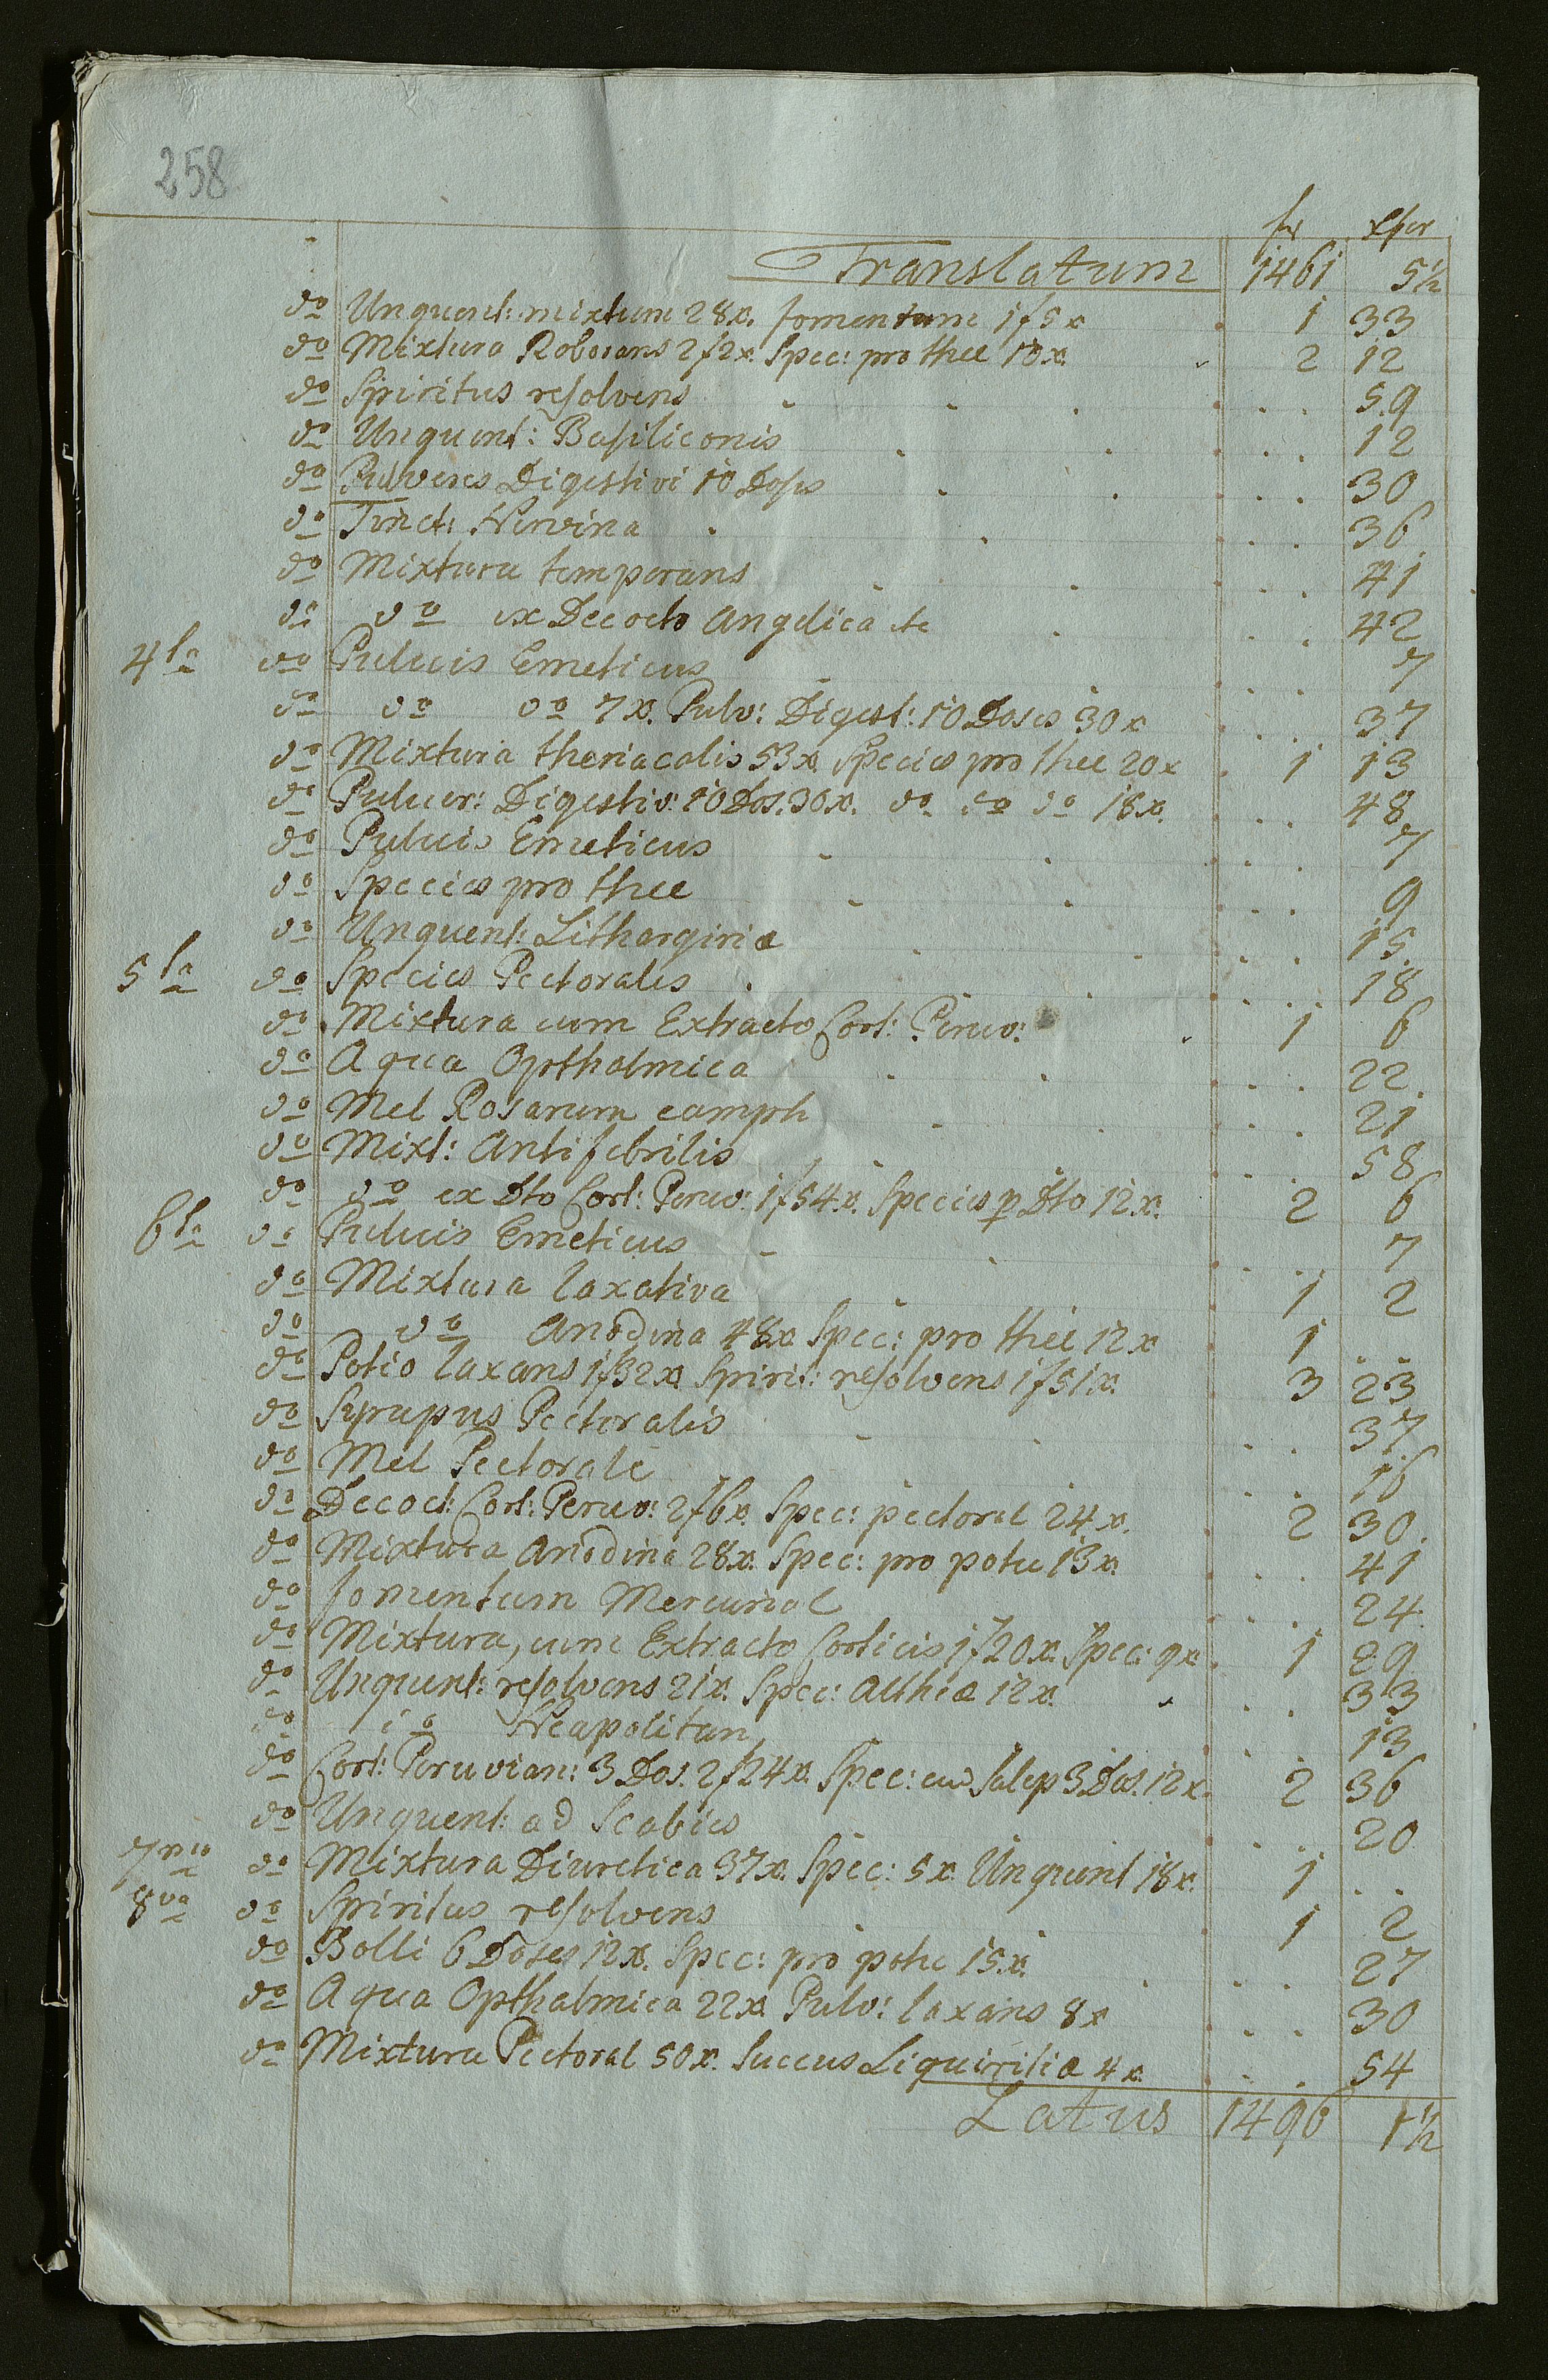 258
fr xfer
Translatum 1461 5½
do Unguent: mixtum 28x. fomentum 1f5x 1 33
do Mixtura Roborans 2f2x. Spec: pro thee 10x. 2 12
do Spiritus resolvens 59
do Unguent: Basiliconis 12
do Pulveres Digestivi 10 Doses 30
do Tinct: Nervina 36
do Mixtura temperans 41
do do ex Decocto Angelica etc 42
4ta do Pulvis Emeticus 7
do do do 7x. Pulv: Digest: 10 Doses 30x 37
do Mixtura theriacalis 53x. Species pro thee 20x 1 13
do Pulver: Digestiv: 10 Dos. 30x. do do do 18x. 48
do Pulvis Emeticus 7
do Species pro thee 9
do Unguent: Lithargiriæ 15
5ta do Species Pectorales 18
do Mixtura cum Extracto Cort: Peruv: 1 6
do Aqua Opthalmica 22
do Mel Rosarum camph 21
do Mixt: Antifebrilis 58
do do ex Dto Cort: Peruv: 1f54x. Species p Dto 12x. 2 6
6ta do Pulvis Emeticus 7
do Mixtura laxativa 1 2
do do Anodina 48x Spec: pro thee 12x 1 . .
do Potio laxans 1f32x. Spirit: resolvens 1f51x. 3 23
do Syrupus Pectoralis 37
do Mel Pectorale 16
do Decoct: Cort: Peruv: 2f6x. Spec: pectoral 24x. 2 30
do Mixtura Anodina 28x. Spec: pro potu 13x. 41
do fomentum Mercurial 24
do Mixtura, cum Extracto Corticis 1f20x. Spec: 9x. 1 29
do Unguent: resolvens 21x. Spec: Altheæ 12x. 33
do do Neapolitan 13
do Cort: Peruvian: 3 Dos. 2f24x. Spec: Salep 3 Dos. 12x. 2 36
do Unguent: ad Scabies 20
7ma do Mixtura Diuretica 37x. Spec: 5x. Unguent 18x. 1 . .
8va do Spiritus resolvens 1 2
do Bolli 6 Doses 12x. Spec: pro potu 15x. 27
do Aqua Opthalmica 22x. Pulv: laxans 8x 30
do Mixtura Pectoral 50x. Succus Liquiritiæ 4x. 54
Latus 1496 1½